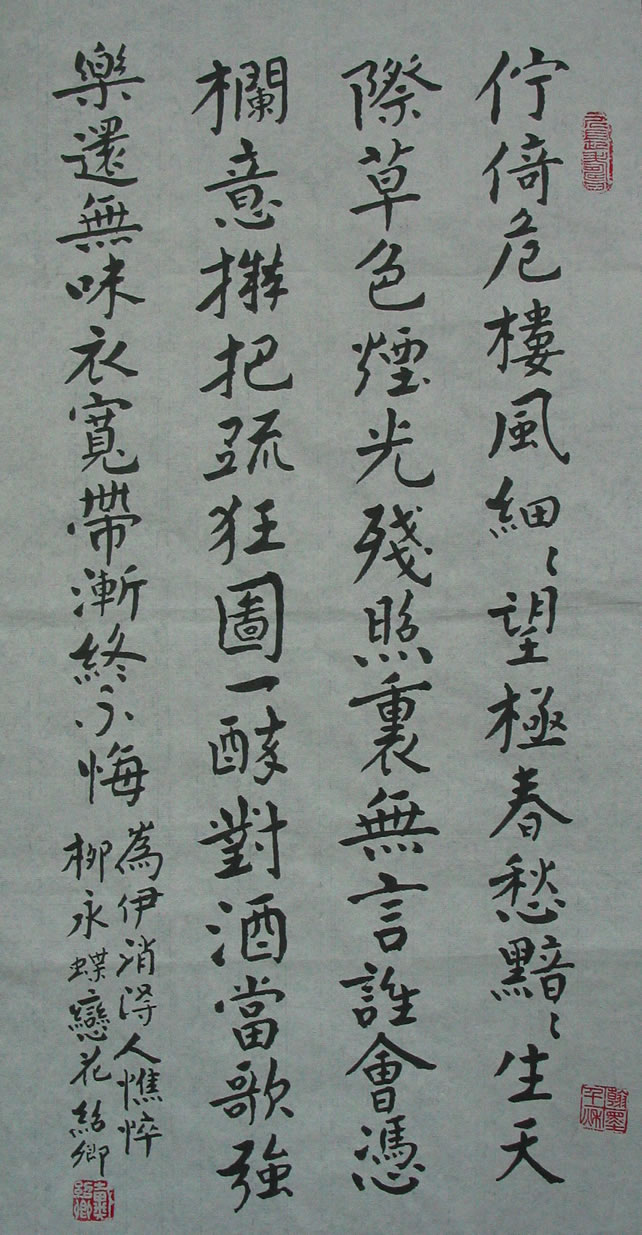 佇倚危樓風細〻望極春愁黯〻生天
際草色煙光殘照裏無言誰會憑
欄意擬把疏狂圖一醉對酒當歌強
樂還無味衣寬帶漸終不悔
為伊消得人憔悴
柳永蝶戀花紹卿
翰墨千秋